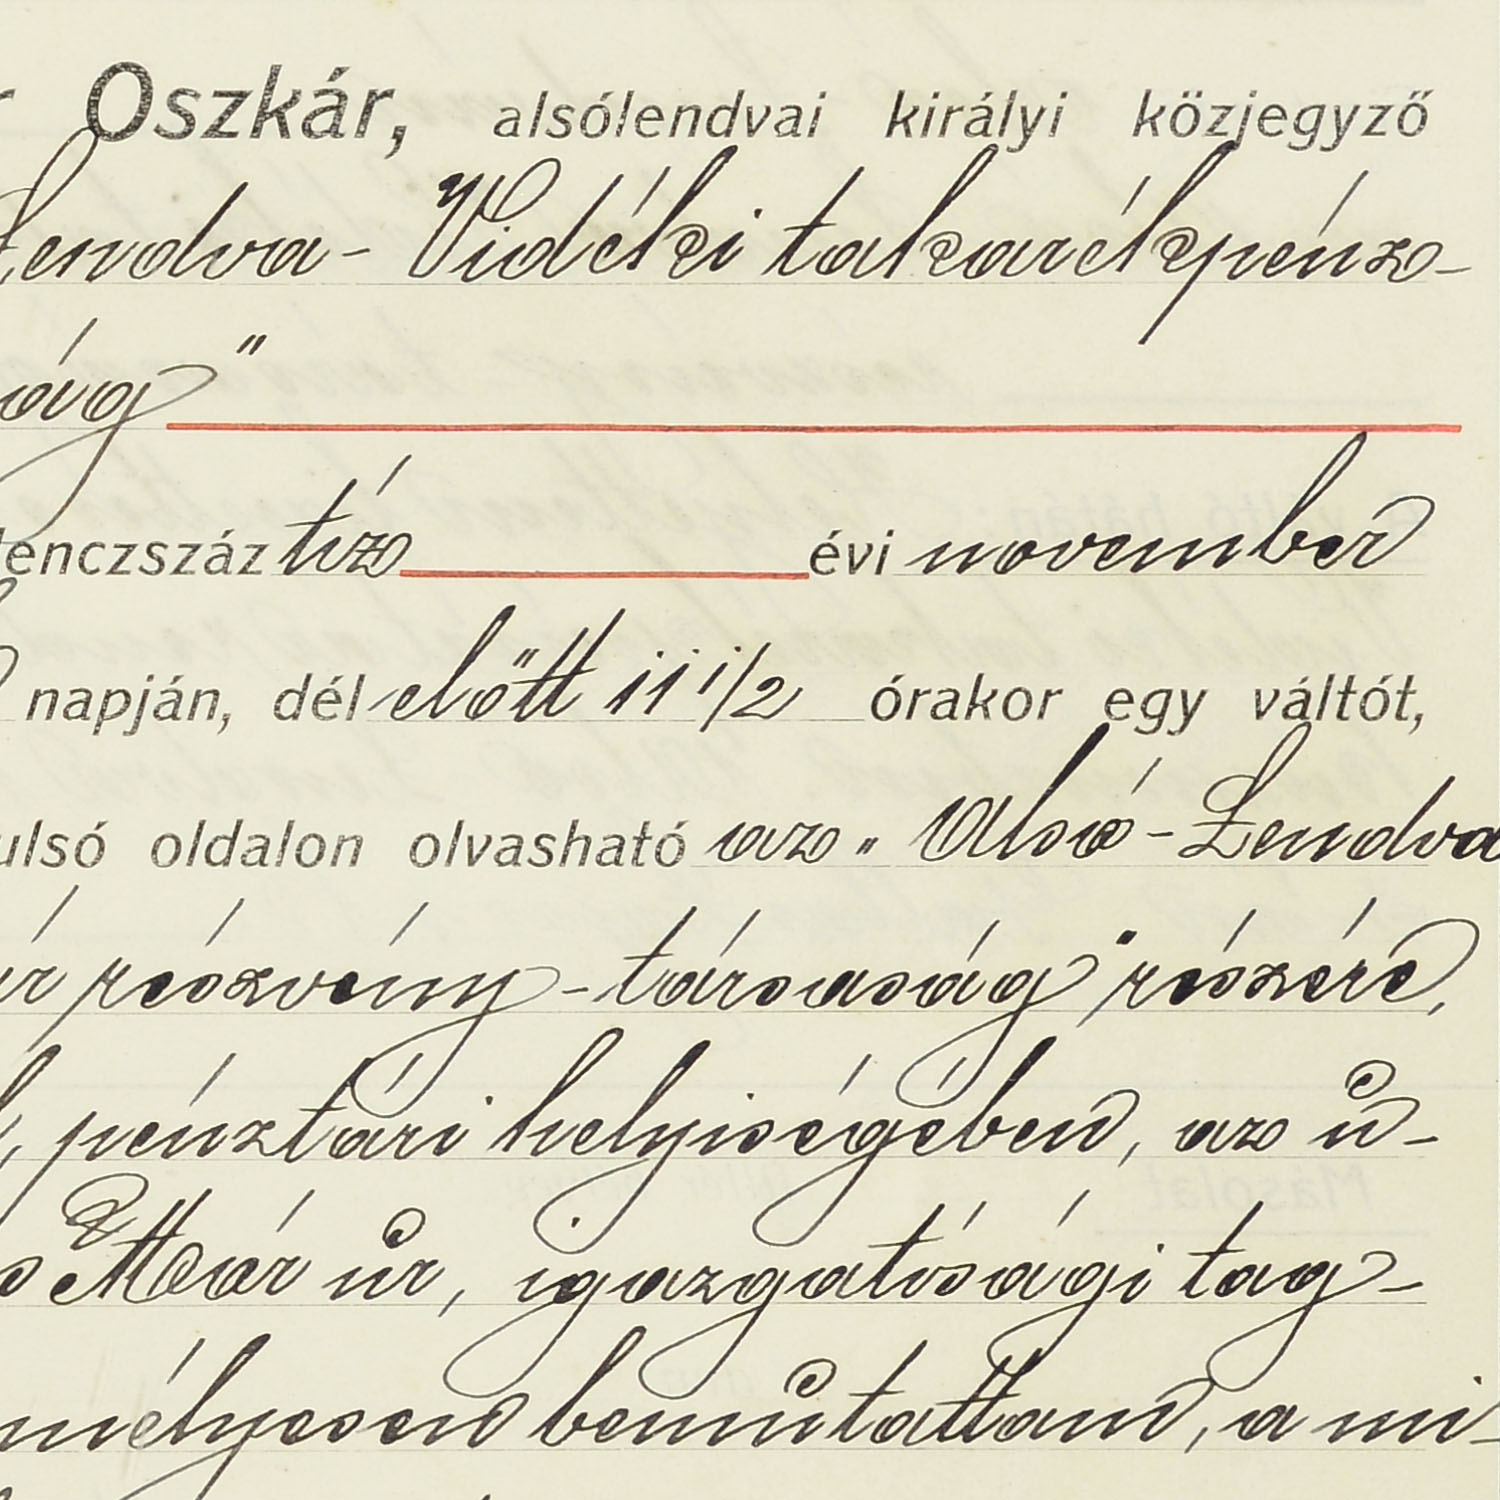 r Oszkár, alsólendvai királyi közjegyző
Lendva - Vidéki takarékpénz-
ság"
tenczszáz tíz évi november
napján, dél előtt 11 1/2 órakor egy váltót,
ulsó oldalon olvasható az „Alsó-Lendva
ár részvény - társaság" részére,
pénztári helyiségében, az ü-
s Mór úr, igazgatósági tag-
mélyesen bemutattam, a mi-